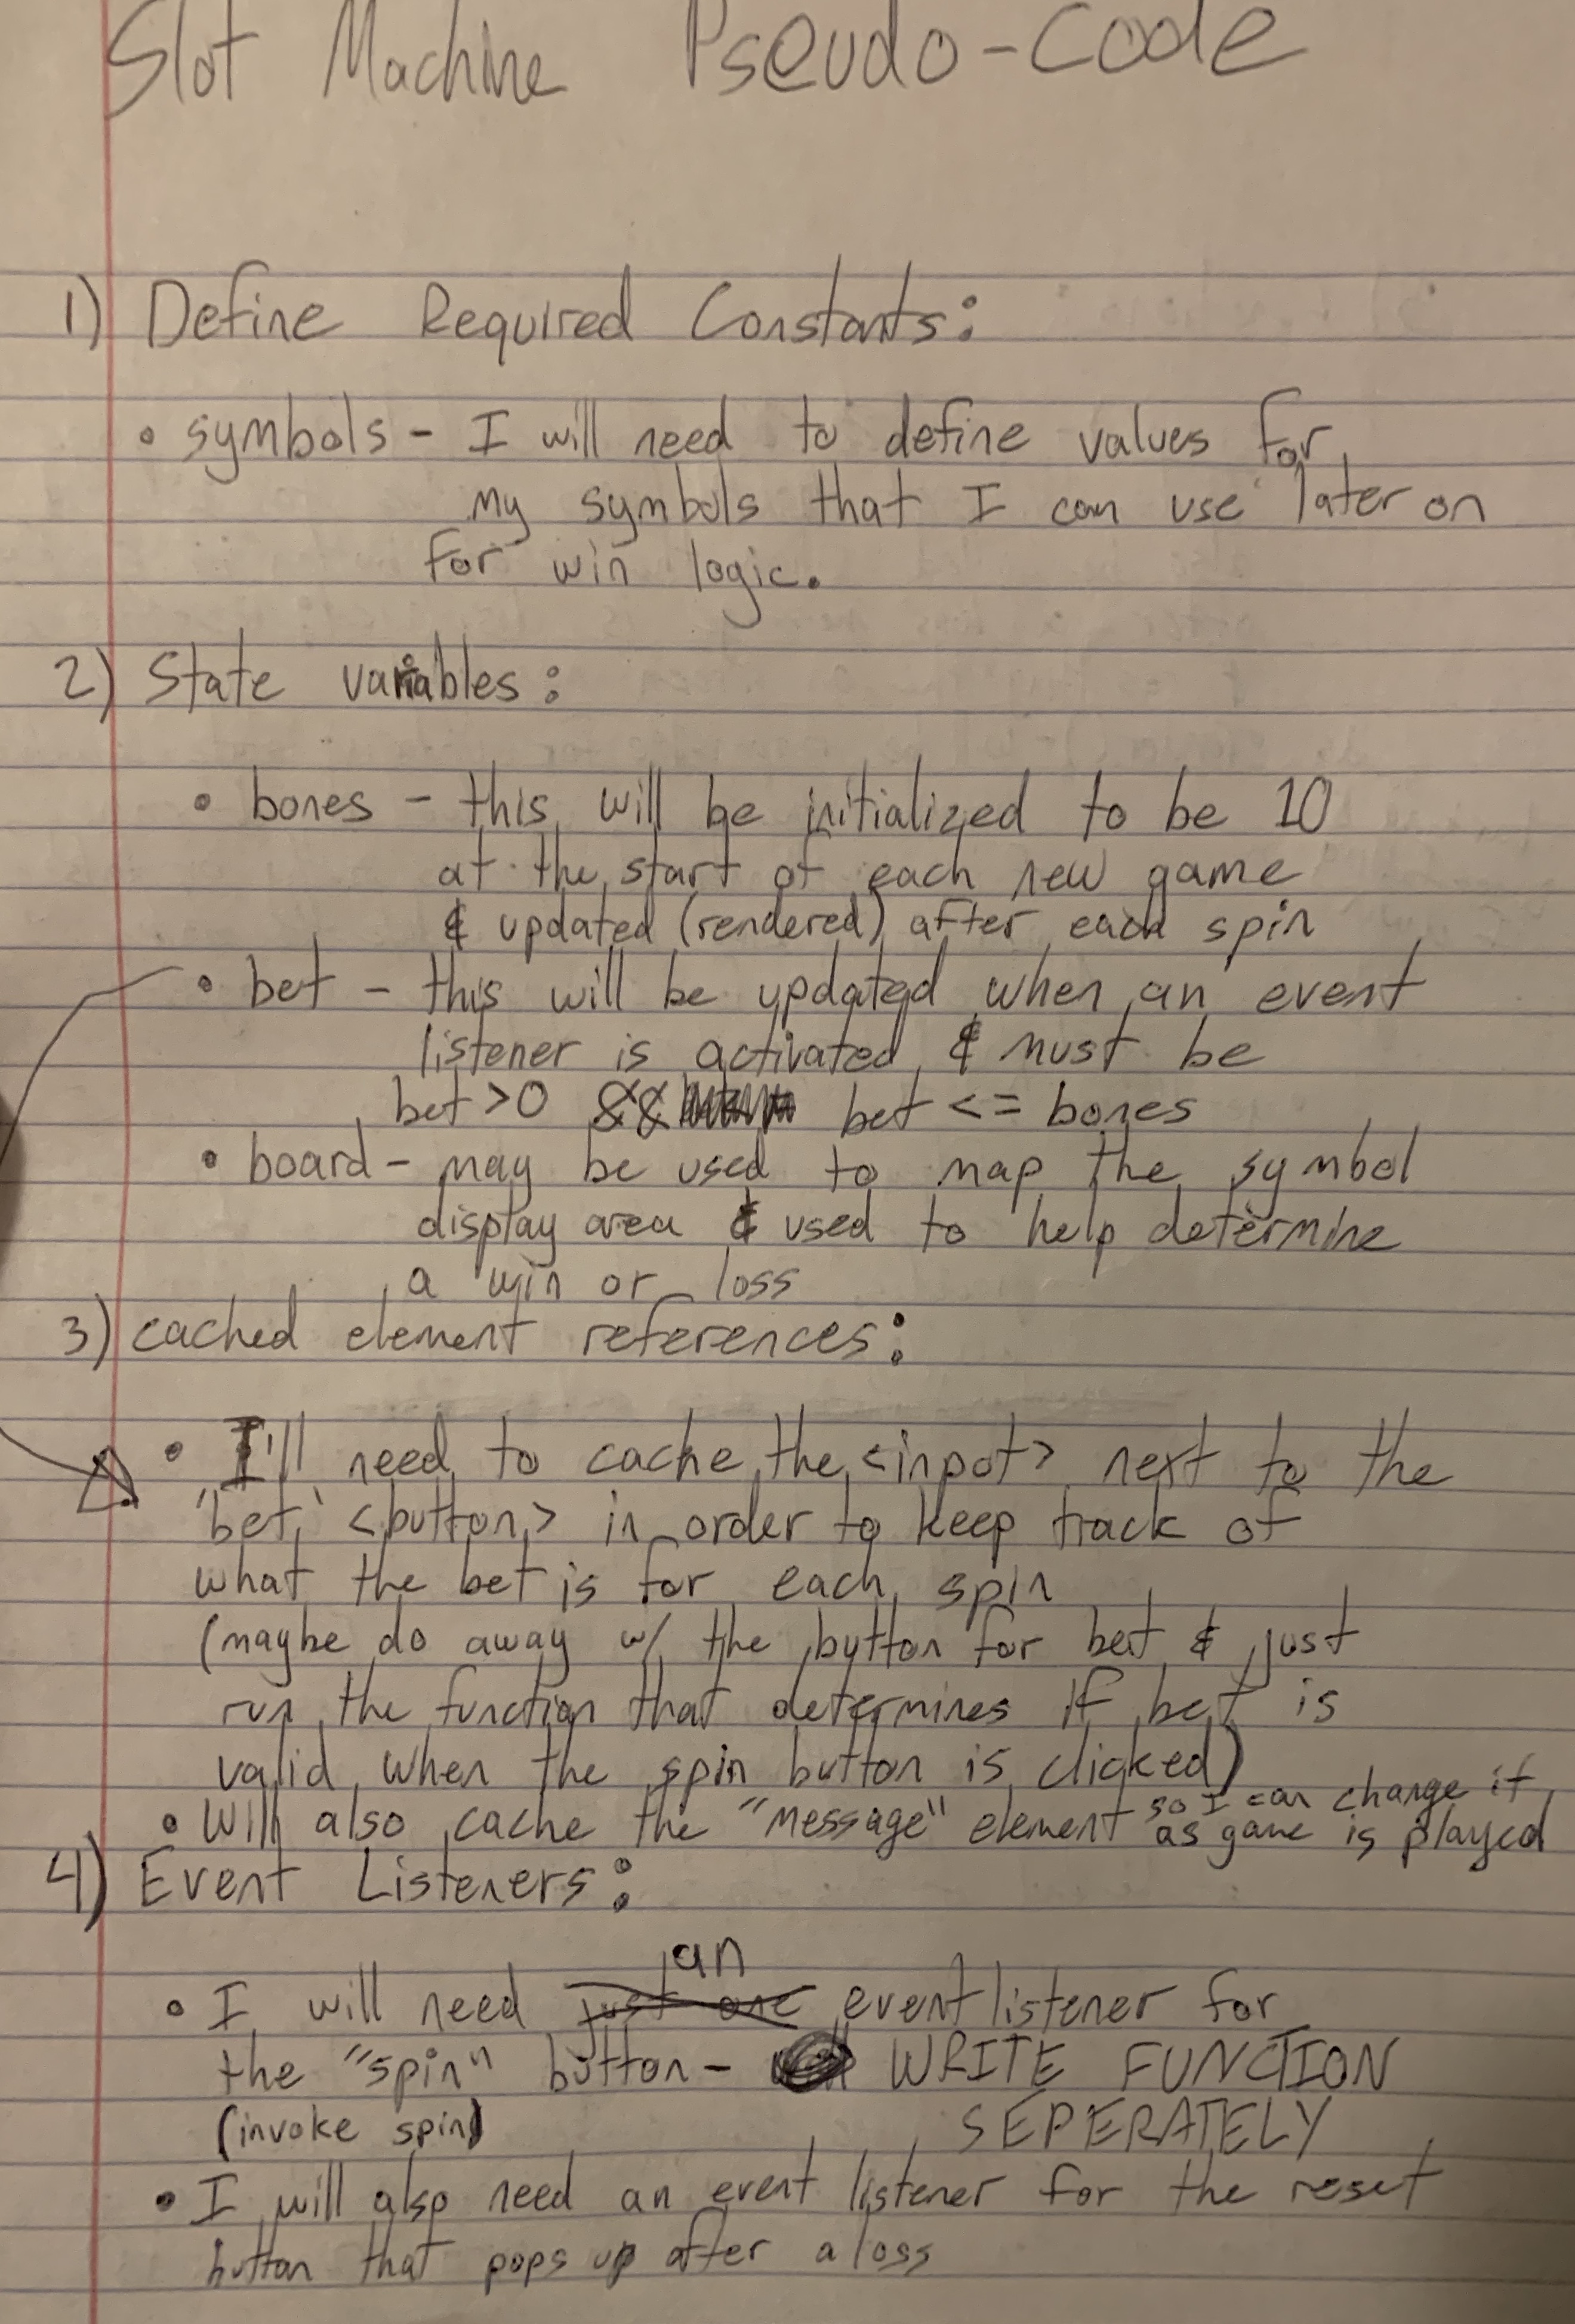 Slot Machine Pseudo-code
1) Define Required Constants:
• symbols - I will need to define values for
my symbols that I can use later on
for win logic.
2) State variables:
• bones - this will be initialized to be 10
at the start of each new game
& updated (rendered) after each spin
• bet - this will be updated when an event
listener is activated & must be
bet >0 && bet <= bones
• board - may be used to map the symbol
display area & used to help determine
a win or loss
3) cached element references:
• I'll need to cache the <input> next to the
'bet' <button> in order to keep track of
what the bet is for each spin
(maybe do away w/ the button for bet & just
run the function that determines if bet is
valid when the spin button is clicked)
• Will also cache the "message" element so I can change it
as game is played
4) Event Listeners:
an
• I will need just one event listener for
the "spin" button - WRITE FUNCTION
(invoke spin) SEPERATELY
• I will also need an event listener for the reset
button that pops up after a loss